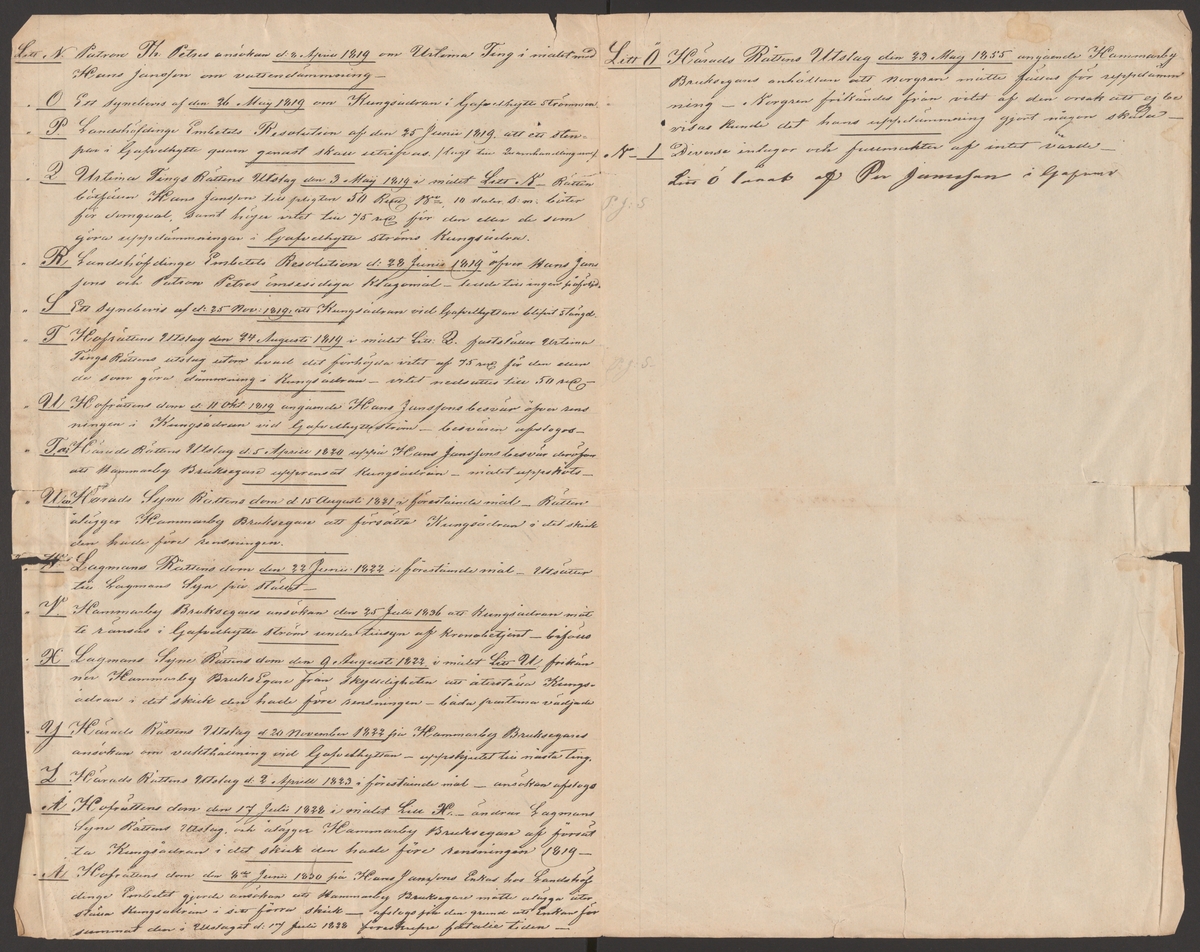 Litt N. Patron Th. Petres ansökan d 2 April 1819 om Urtima Ting i målet med
Hans Jansson om vattendämning —
" O Ett Synebevis af den 26 May 1819 om Kungsådran i Gafvelhytte Strömmen
" P Landshöfdinge Embetets Resolution af den 25 Junii 1819. att ett sten-
par i Gafvelhytte quarn genast skall utrifvas.
" Q Urtima Tings Rättens Utslag den 3 Maij 1819 i målet Litt K — Rätten
Hans Jansson till pligten 50 10 daler S.m. böter
för domqual, samt höjer vitet till 75 för den eller de som
göra uppdämmningar i Gafvelhytte Ströms Kungsådra.
" R Landshöfdinge Embetets Resolution d. 28 Junii 1819 öfver Hans Jans
sons och Patron Petres ömsesidiga Klagomål — ledde till ingen påföljd.
" S Ett Synebevis af d. 25 Nov: 1819. att Kungsådran vid Gafvelhyttan blifvit stängd.
" T Hofrättens Utslag den 24 Augusti 1819 i målet Litt: Q. fastställer Urtima
Tings Rättens utslag utom hvad det förhöjda vitet af 75 för den eller
de som göra dämmning i Kungsådran — vitet nedsattes till 50
" U Hofrättens dom d. 11 Okt 1819 angående Hans Janssons besvär öfver rens
ningen i Kungsådran vid Gafvelhytteström — besvären afslogos —
" Härads Rättens Utslag d. 5 Aprill 1820 uppå Hans Janssons besvär deröfver
att Hammarby Bruksegare upprensat Kungsådran — målet uppsköts —
" Härads Syne Rättens dom d 15 Augusti 1821 i förestående mål — Rätten
ålägger Hammarby Bruksegare att försätta Kungsådran i det skick
den hade före rensningen.
" W Lagmans Rättens dom den 22 Junii 1822 i förestående mål — Utsätter
till Lagmans Syn på stället —
" V. Hammarby Bruksegares ansökan den 25 Julii 1836 att Kungsådran mät
te ränsas i Gafvelhytte ström under tillsyn af kronobetjent — bifölls
" X Lagmans Syne Rättens dom den 9 Augusti 1822 i målet Litt U. frikän
ner Hammarby BruksEgare från skyldigheten att återställa Kungs-
ådran i det skick den hade före rensningen — båda parterna vädjade
" Y Härads Rättens Utslag d 20 November 1822 på Hammarby Bruksegares
ansökan om vakthållning vid Gafvelhyttan — uppskjutet till nästa ting.
" Z Härads Rättens Utslag d. 2 Aprill 1823 i förestående mål — ansökan afslogs
" Å Hofrättens dom den 17 Julii 1828 i målet Litt X. — ändrar Lagmans
Syne Rättens Utslag, och ålägger Hammarby Bruksegare att försät
ta Kungsådran i det skick den hade före rensningen 1819 —
" Ä Hofrättens dom den 8de Junii 1830 på Hans Janssons Enkas hos Landshöf
dinge Embetet gjorde ansökan att Hammarby Bruksegare måtte ålägga åter
ställa Kungsådran i sitt förra skick — afslogs på den grund att Enkan för
summat den i Utslaget d. 17 Julii 1828 föreskrifne fatalie tiden —
Litt Ö Härads Rättens Utslag den 23 May 1855 angående Hammarby
Bruksegares anhållan att Norgren måtte fällas för uppdämm
ning — Norgren frikändes från vitet af den orsak att ej be
visas kunde det hans uppdämning gjort någon skada —
" N— 1 Diverse inlagor och fullmakter af intet värde —
Litt Ö lånat af Per Jansson i Gafvel
P.J:S
P.J:S.